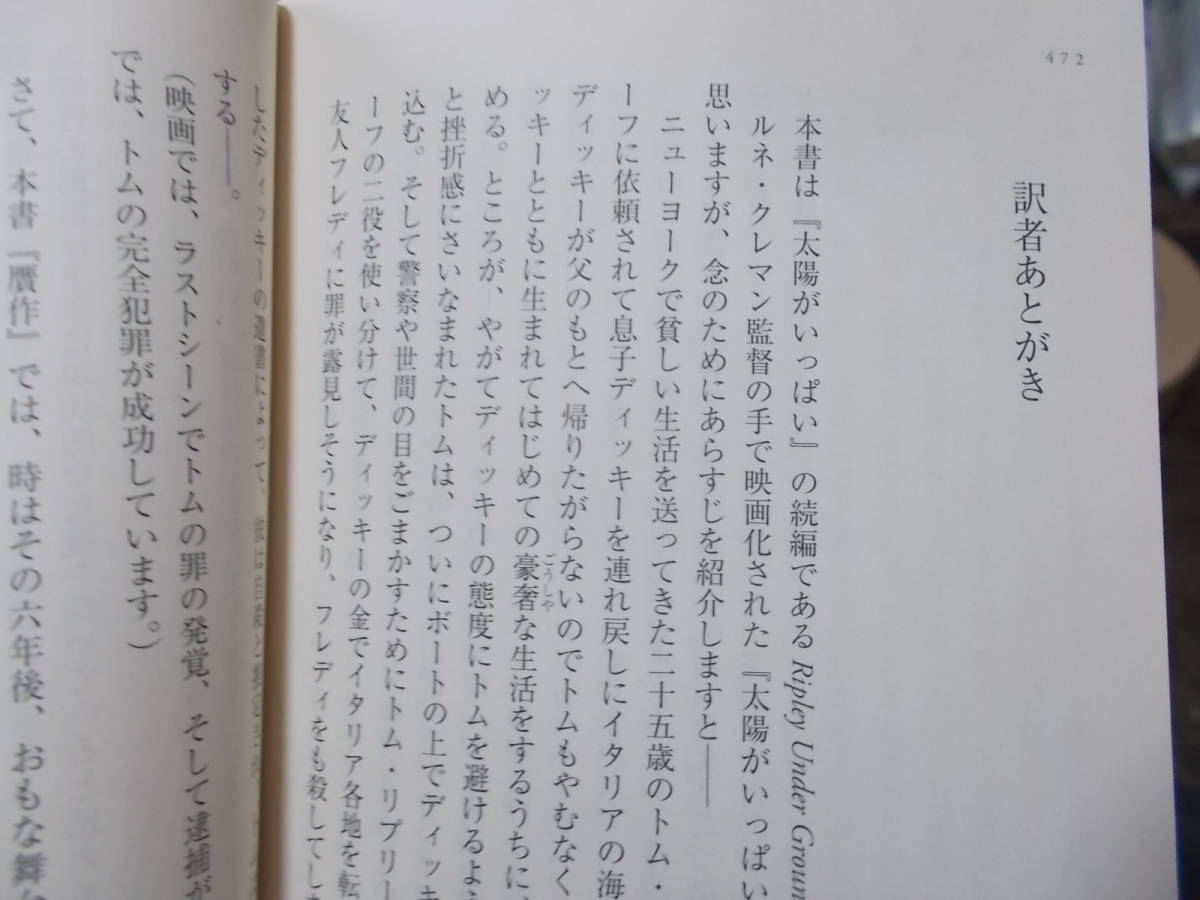 472
訳者あとがき
本書は『太陽がいっぱい』の続編である Ripley Under Groun
ルネ・クレマン監督の手で映画化された『太陽がいっぱい
思いますが、念のためにあらすじを紹介しますと――
ニューヨークで貧しい生活を送ってきた二十五歳のトム・
ーフに依頼されて息子ディッキーを連れ戻しにイタリアの海
ディッキーが父のもとへ帰りたがらないのでトムもやむなく
ッキーとともに生まれてはじめての豪奢な生活をするうちに、
ごうしゃ
める。ところが、やがてディッキーの態度にトムを避けるよう
と挫折感にさいなまれたトムは、ついにボートの上でディッキ
込む。そして警察や世間の目をごまかすためにトム・リプリー
ーフの二役を使い分けて、ディッキーの金でイタリア各地を転
友人フレディに罪が露見しそうになり、フレディをも殺してしま
したディッキーの遺書によって、彼は自殺と
する――。
(映画では、ラストシーンでトムの罪の発覚、そして逮捕が
では、トムの完全犯罪が成功しています。)
さて、本書『贋作』では、時はその六年後、おもな舞台